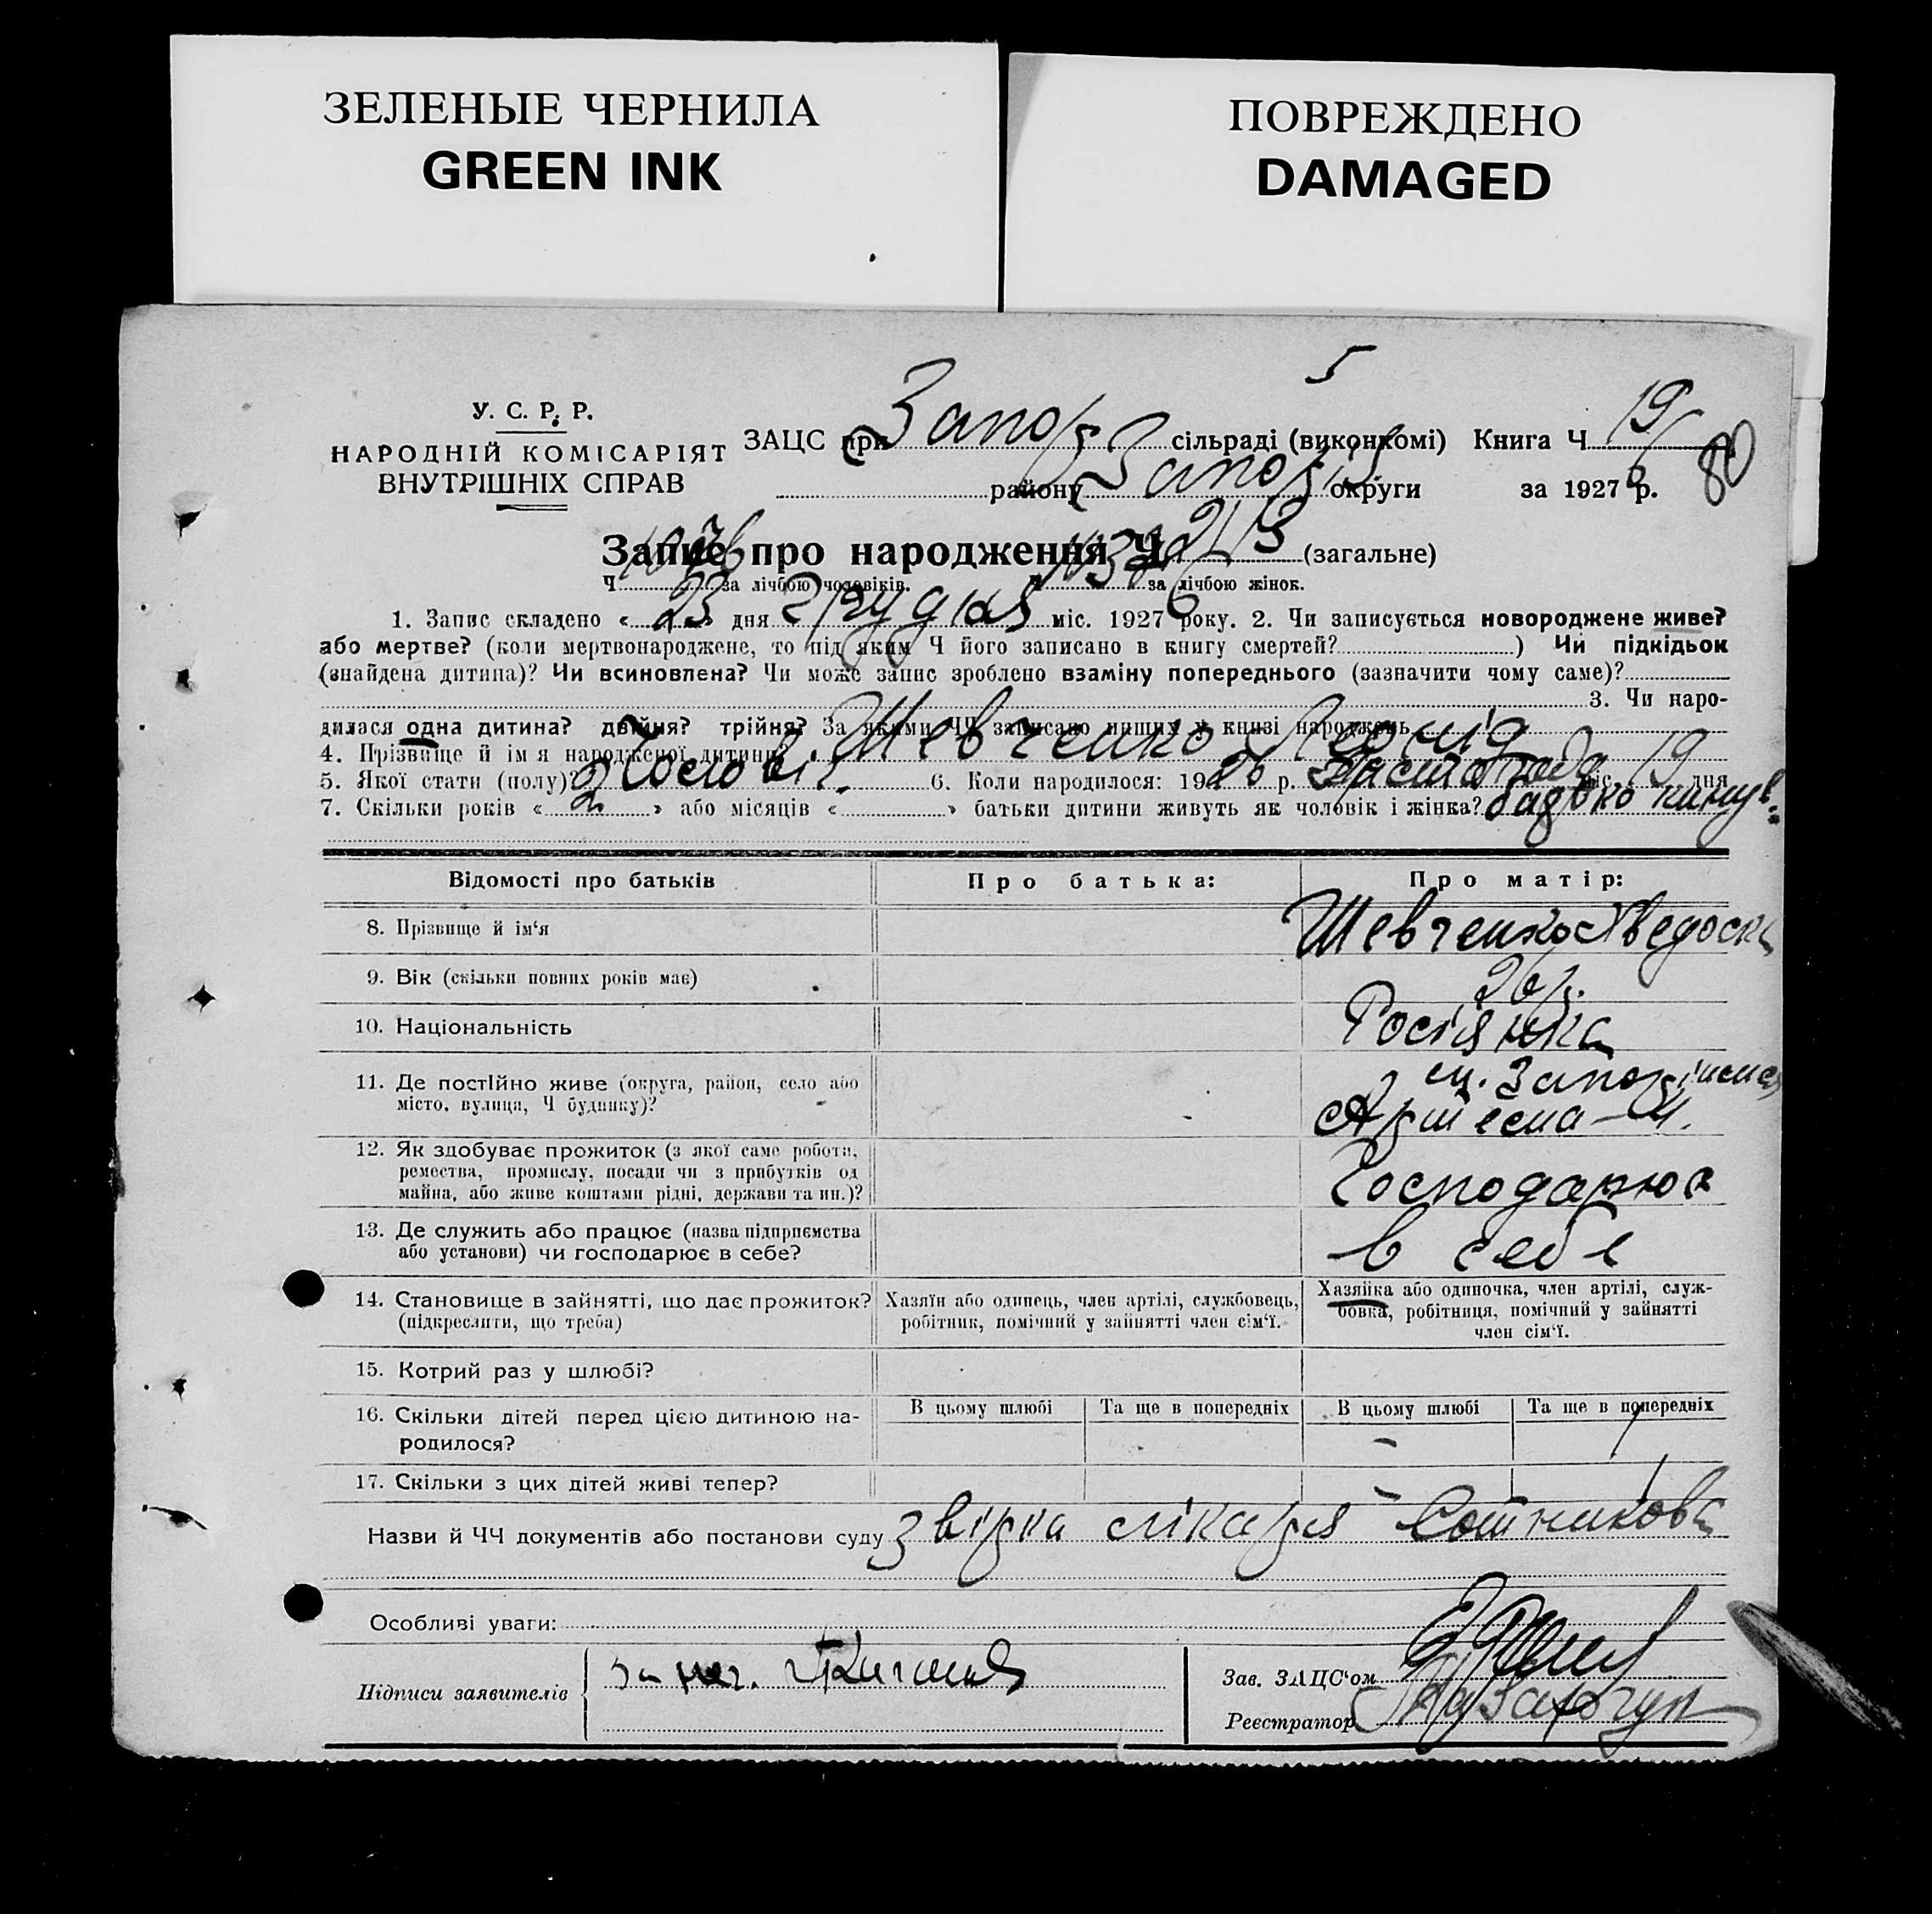 ЗЕЛЕНЫЕ ЧЕРНИЛА
GREEN INK
ПОВРЕЖДЕНО
DAMAGED
5
У. С. Р. Р.
НАРОДНІЙ КОМІСАРІЯТ
ВНУТРІШНІХ СПРАВ
ЗАЦС при Запор сільраді (виконкомі) Книга Ч 19
80
району Запоріз округи за 1926 р.
Запис про народження Ч (загальне)
Ч за лічбою чоловіків. Ч за лічбою жінок.
1. Запис складено « 23 » дня грудня міс. 1926 року. 2. Чи записується новороджене живе?
або мертве? (коли мертвонароджене, то під яким Ч його записано в книгу смертей? ) Чи підкідьок
(знайдена дитина)? Чи всиновлена? Чи може запис зроблено взаміну попереднього (зазначити чому саме)?
3. Чи наро-
дилася одна дитина? двійня? трійня? За якими ЧЧ записано инших у книзі народжень
4. Прізвище й ім'я народженої дитини? Шевченко Леонід
5. Якої стати (полу)? Чоловіч. 6. Коли народилося: 1926 р. Листопада міс. 19 дня
7. Скільки років « 2 » або місяців « » батьки дитини живуть як чоловік і жінка? батько кинув.
Відомості про батьків Про батька: Про матір:
8. Прізвище й ім'я Шевченко
9. Вік (скільки повних років має) 26 р.
10. Національність Росіянка
11. Де постійно живе (округа, район, село або
місто, вулиця, Ч будинку)?
м.
12. Як здобуває прожиток (з якої саме роботи,
ремества, промислу, посади чи з прибутків од
майна, або живе коштами рідні, держави та ин.)?
Господарює
13. Де служить або працює (назва підприємства
або установи) чи господарює в себе?
в себе
14. Становище в зайнятті, що дає прожиток?
(підкреслити, що треба)
Хазяїн або одинець, член артілі, службовець,
робітник, помічний у зайнятті член сім'ї.
Хазяйка або одиночка, член артілі, служ-
бовка, робітниця, помічний у зайнятті
член сім'ї.
15. Котрий раз у шлюбі?
16. Скільки дітей перед цією дитиною на-
родилося?
В цьому шлюбі Та ще в попередніх В цьому шлюбі Та ще в попередніх
- 1
17. Скільки з цих дітей живі тепер? - 1
Назви й ЧЧ документів або постанови суду звірка лікаря Сотникова
Особливі уваги:
Підписи заявителів
Зав. ЗАЦС'ом
Реєстратор